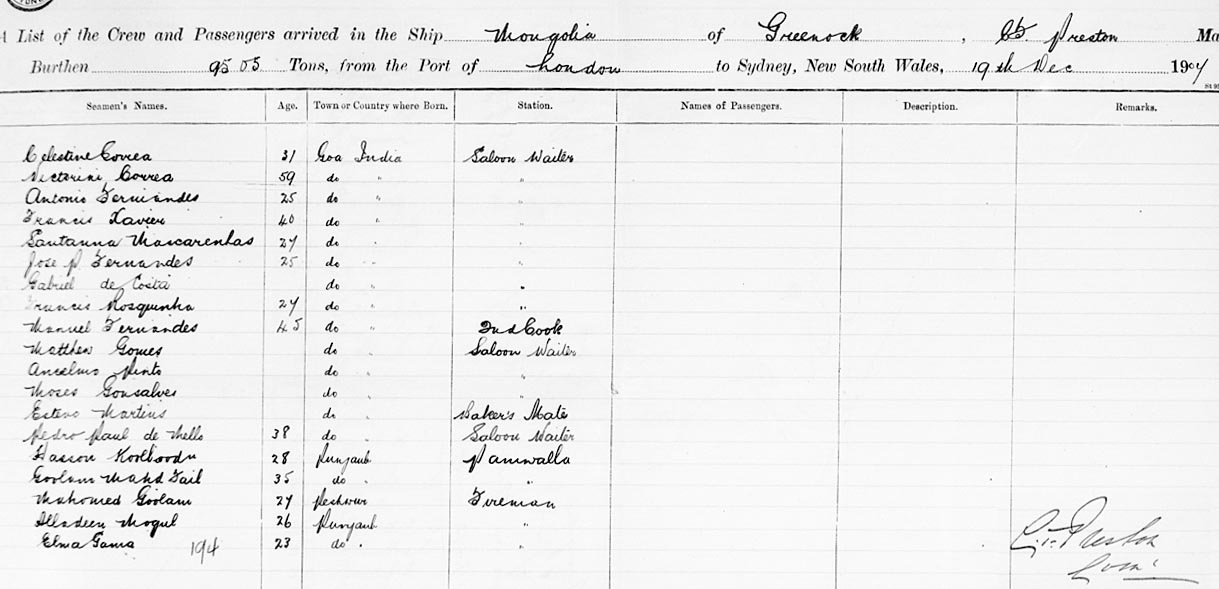 List of the Crew and Passengers arrived in the Ship Mongolia of Greenock, Preston Ma
Burthen 9505 Tons, from the Port of London to Sydney, New South Wales, 19th Dec 1904
Seamen's Names. Age. Town or Country where Born. Station. Names of Passengers. Description. Remarks.
Celestine Correa 31 Goa India Saloon Waiter
Correa 59 do "
Antonio Fernandes 25 do " "
Francis Xavier 40 do " "
Santanna Mascarenhas 27 do " "
Jose P Fernandes 25 do " "
Gabriel de Costa do " "
Francis Rosquinha 27 do " "
Manuel Fernandes 45 do " 2nd Cook
Matthew Gomes do " Saloon Waiter
Anselmo Pinto do " "
Moses Gonsalves do " "
Estevo Martins do " Baker's Mate
Pedro Paul de Mello 38 do " Saloon Waiter
Hasson 28 Punjaub Paniwalla
Goolam Mahd 35 do "
Mahomed Goolam 27 Peshwur Fireman
Alladeen Mogul 26 Punjaub "
Elma 194 23 do " "
Preston
Com